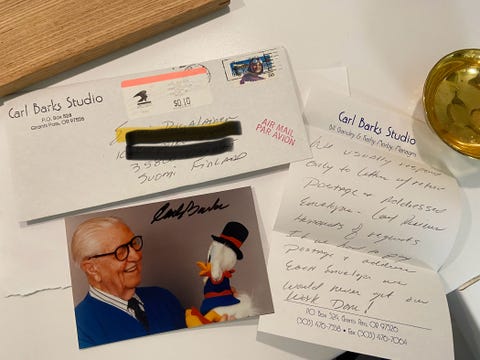 Carl Barks Studio
P.O. Box 524
Grants Pass, OR 97526
$0.10
AIR MAIL
PAR AVION
Suomi Finland
Carl Barks
Carl Barks Studio
Bill Grandey & Kathy Morby, Managers
We usually respond
only to letters w/return
Postage & Addressed
Envelope. Carl receives
Hundreds of requests
If we had to pay
Postage & address
Each Envelope we
Would never get our
Work Done!
P.O. BOX 524, Grants Pass, OR 97526